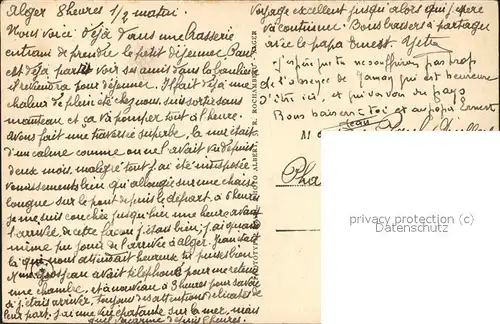 Alger 8 heures 1/2 matin.
Nous voici déjà dans une brasserie
entrain de prendre le petit déjeuner Paul
est déjà parti voir ses amis dans la banlieue
et reviendra pour déjeuner. Il fait déjà une
chaleur de plein été chez nous, suis sortie sans
manteau et ça va pomper tout à l'heure.
Avons fait une traversée superbe la mer était
d'un calme comme on nel avait vu depuis
deux mois, malgré tout j'ai été indisposée
vomissements bien qu'allongée sur une chaise
longue sur le pont depuis le départ. à 6 heures
je me suis couchée jusqu'hier une heure avant
l'arrivée de cette façon j'étais bien; j'ai quand
même pu jouir de l'arrivée à Alger. Jean était
là qui nous attendait heureux
Mme Grosjean avait téléphoné pour me retenir
une chambre, et à nouveau à 3 heures pour savoir
si j'étais arrivée, toujours des attentions délicates de
leur part. J'ai une vue épatante sur la mer, mais
quel vacarme depuis 5 heures.
Voyage excellent jusqu'alors qui j'espère
va continuer. Bons baisers à partager
avec le papa Ernest - Yette
J'espère que tu ne souffriras pas trop
de l'absence de Jamay qui est heureuse
d'être ici, et qui va voir du pays
Bons baisers à toi et au papa Ernest
Jean
PHOTOTYPIE ALBERT, R. ROCHAMBEAU, ALGER
privacy protection
oldthing.de